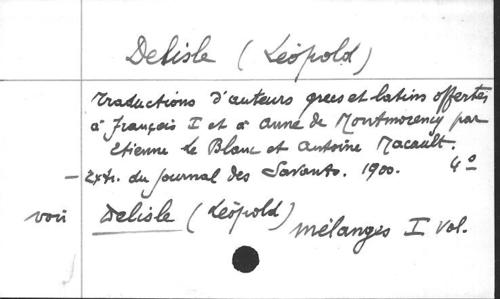 Delisle (Léopold)
Traductions d'auteurs grecs et latins offertes
à François I et à Anne de Montmorency par
Etienne le Blanc et Antoine Macault.
– Extr. du Journal des Savants. 1900. 4º
voir Delisle (Léopold) mélanges I vol.